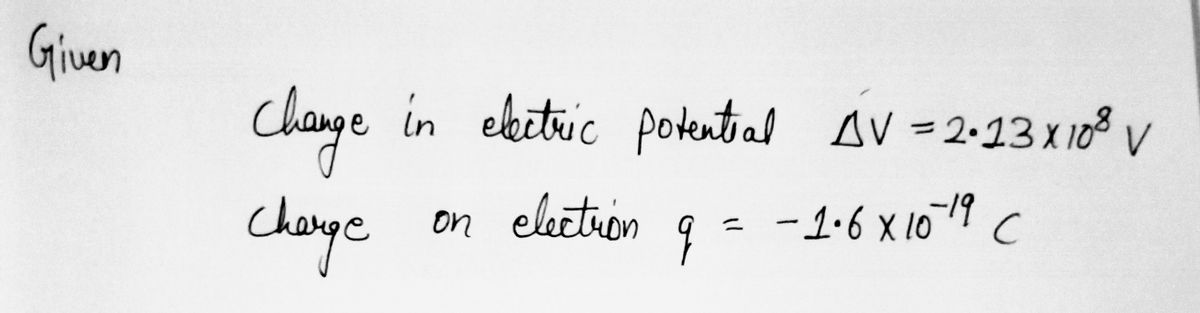 Given
Change in electric potential ΔV = 2.13 x 10⁸ V
Charge on electron q = -1.6 x 10⁻¹⁹ C